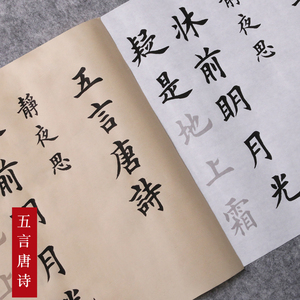 夜思
牀前明月光
疑是地上霜
五言唐詩
靜夜思
前明月光
地上
五言唐诗